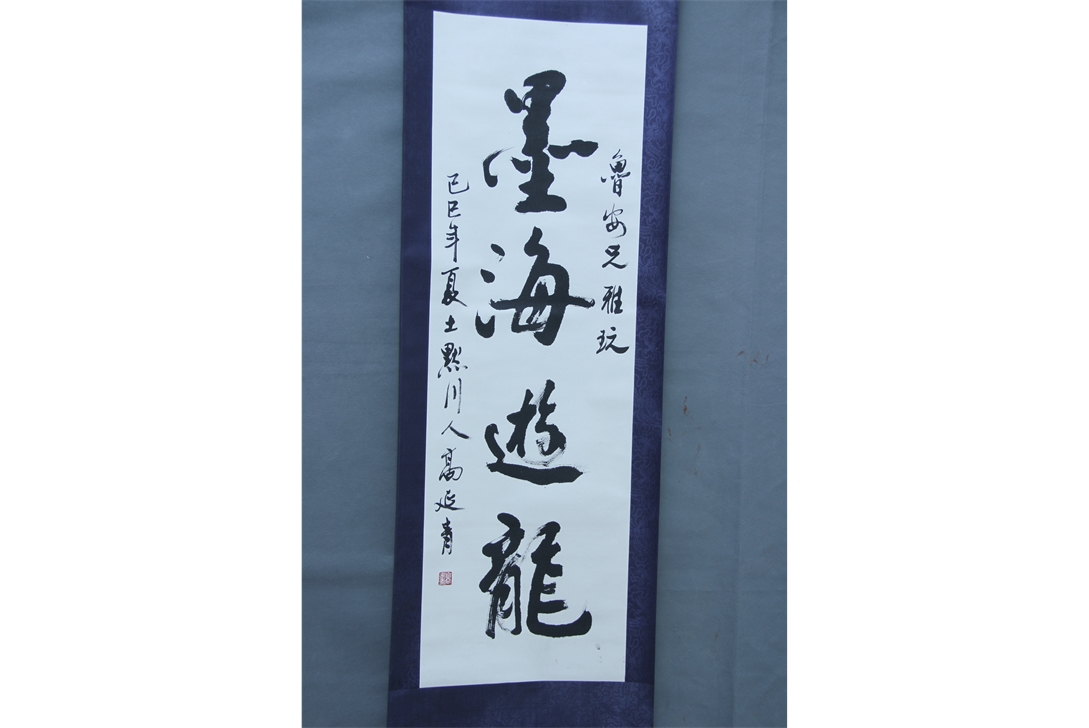 魯安兄雅玩
墨海遊龍
己巳年夏土默川人高延青